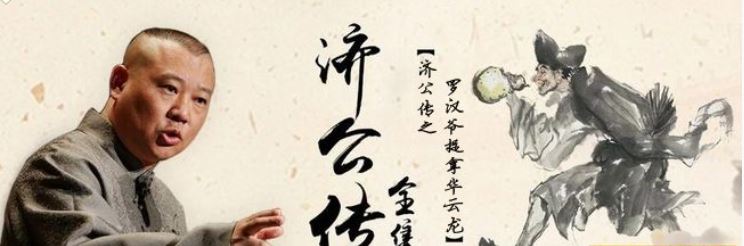 济公传
全集
【济公传之
罗汉爷捉拿华云龙】